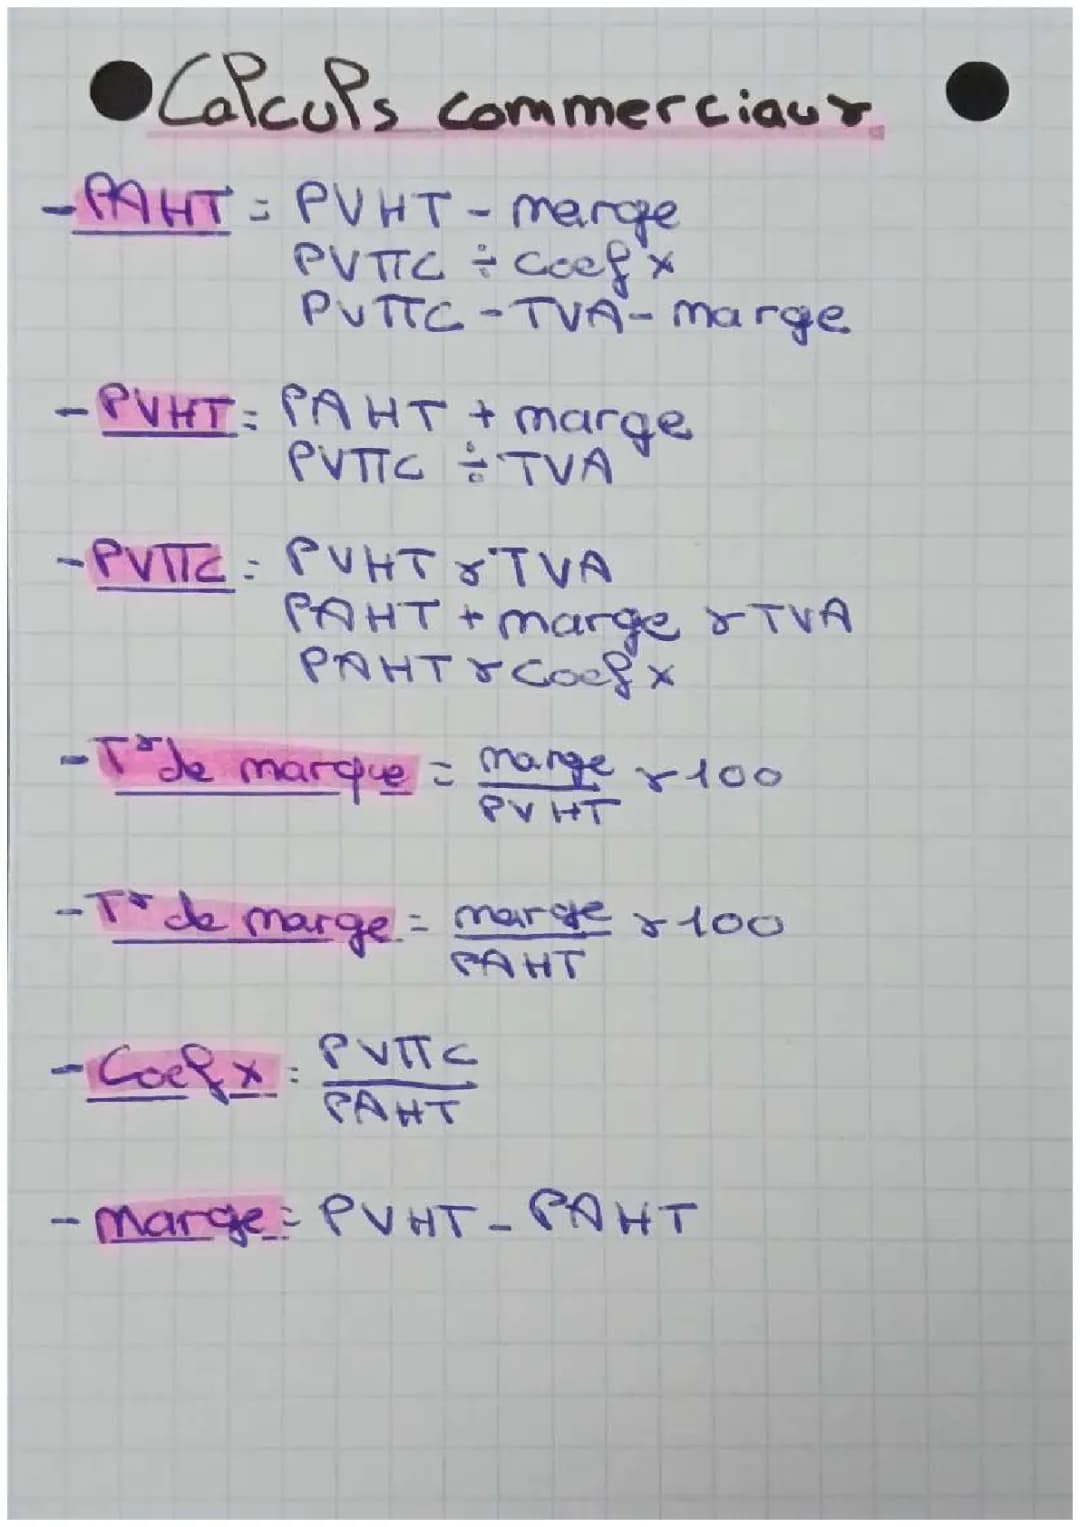 Calculs commerciaux
- PAHT = PVHT - marge
PVTTC ÷ Coef x
PVTTC - TVA - marge
- PVHT = PAHT + marge
PVTTC ÷ TVA
- PVTTC = PVHT x TVA
PAHT + marge x TVA
PAHT x Coef x
- Tx de marque = marge x 100
PVHT
- Tx de marge = marge x 100
PAHT
- Coef x = PVTTC
PAHT
- marge = PVHT - PAHT